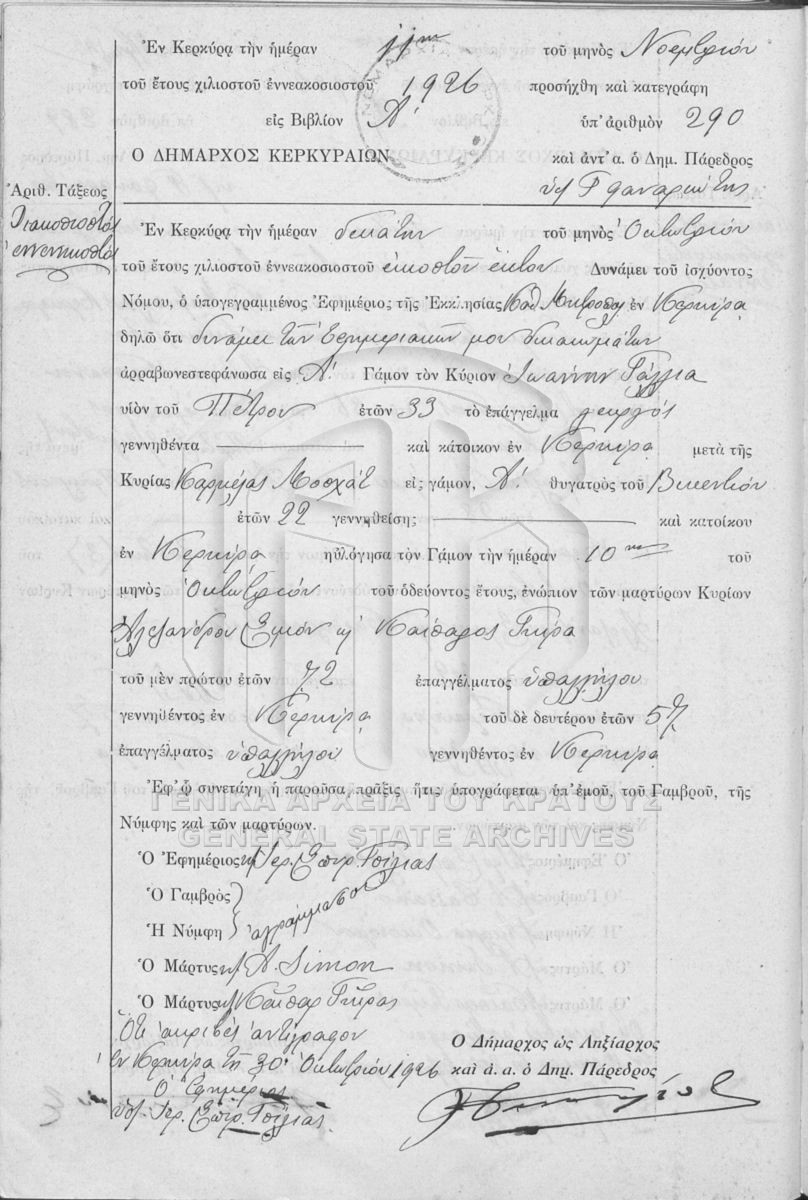 Ἐν Κερκύρᾳ τὴν ἡμέραν 11ην τοῦ μηνὸς Νοεμβρίου
τοῦ ἔτους χιλιοστοῦ ἐννεακοσιοστοῦ 1926 προσήχθη καὶ κατεγράφη
εἰς Βιβλίον Α΄ ὑπ' ἀριθμὸν 290
Ο ΔΗΜΑΡΧΟΣ ΚΕΡΚΥΡΑΙΩΝ καὶ ἀντ' α. ὁ Δημ. Πάρεδρος
Ἀριθ. Τάξεως
Διακοσιοστὸς
ἐννενηκοστὸς
Ἐν Κερκύρᾳ τὴν ἡμέραν δεκάτην τοῦ μηνὸς Ὀκτωβρίου
τοῦ ἔτους χιλιοστοῦ ἐννεακοσιοστοῦ εἰκοστοῦ ἕκτου Δυνάμει τοῦ ἰσχύοντος
Νόμου, ὁ ὑπογεγραμμένος Ἐφημέριος τῆς Ἐκκλησίας Καθ. Μητροπ. ἐν Κερκύρᾳ
δηλῶ ὅτι δυνάμει τῶν ἐφημεριακῶν μου δικαιωμάτων
ἀρραβωνεστεφάνωσα εἰς Α΄ Γάμον τὸν Κύριον Ἰωάννην Γάλλια
υἱὸν τοῦ Πέτρου ἐτῶν 33 τὸ ἐπάγγελμα γεωργὸς
γεννηθέντα καὶ κάτοικον ἐν Κερκύρᾳ μετὰ τῆς
Κυρίας Καρμέλας Μοσχάτ εἰς γάμον, Α΄ θυγατρὸς τοῦ Βικεντίου
ἐτῶν 22 γεννηθείσης καὶ κατοίκου
ἐν Κερκύρᾳ ηὐλόγησα τὸν Γάμον τὴν ἡμέραν 10ην τοῦ
μηνὸς Ὀκτωβρίου τοῦ ὁδεύοντος ἔτους, ἐνώπιον τῶν μαρτύρων Κυρίων
Ἀλεξάνδρου Σιμόν κ Κάσπαρος Γκύρα
τοῦ μὲν πρώτου ἐτῶν 72 ἐπαγγέλματος ὑπαλλήλου
γεννηθέντος ἐν Κερκύρᾳ τοῦ δὲ δευτέρου ἐτῶν 57
ἐπαγγέλματος ὑπαλλήλου γεννηθέντος ἐν Κερκύρᾳ
Ἐφ' ᾧ συνετάγη ἡ παροῦσα πρᾶξις ἥτις ὑπογράφεται ὑπ' ἐμοῦ, τοῦ Γαμβροῦ, τῆς
Νύμφης καὶ τῶν μαρτύρων.
ΓΕΝΙΚΑ ΑΡΧΕΙΑ ΤΟΥ ΚΡΑΤΟΥΣ
GENERAL STATE ARCHIVES
Ὁ Ἐφημέριος Ἱερ. Σπυρ. Τσίλιας
Ὁ Γαμβρὸς
Ἡ Νύμφη ἀγράμματοι
Ὁ Μάρτυς A. Simon
Ὁ Μάρτυς Κάσπαρ Γκύρας
Ὅτι ἀκριβὲς ἀντίγραφον
ἐν Κερκύρᾳ τῇ 30 Ὀκτωβρίου 1926
Ὁ Ἐφημέριος
Ἱερ. Σπυρ. Τσίλιας
Ὁ Δήμαρχος ὡς Ληξίαρχος
καὶ ἀ. α. ὁ Δημ. Πάρεδρος